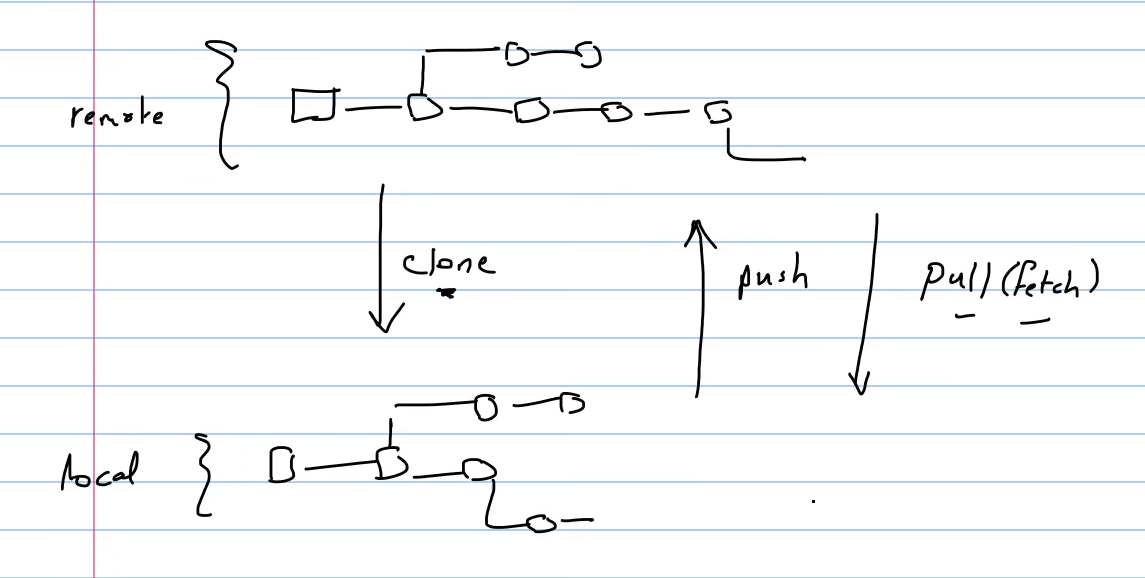 remote
clone
push
pull (fetch)
local